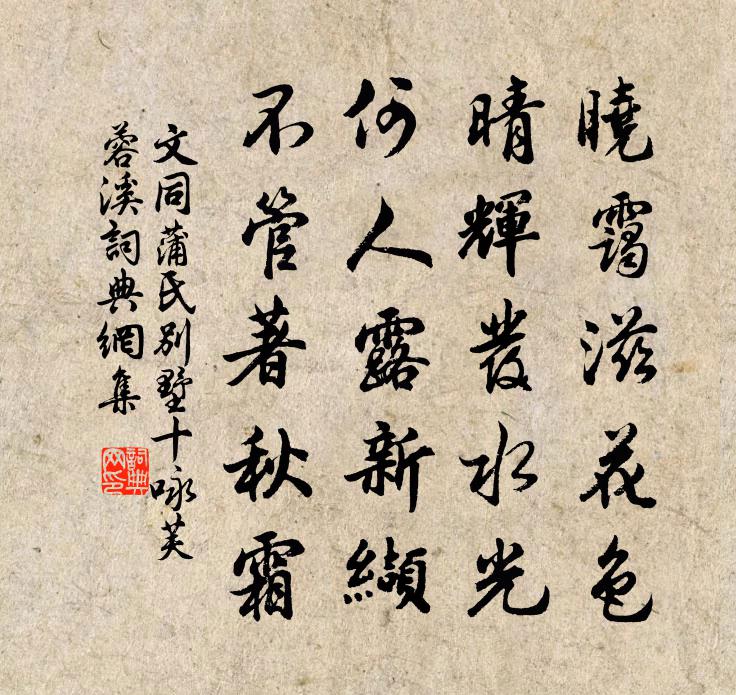 曉靄滋花色
晴輝發水光
何人露新纈
不管著秋霜
文同蒲氏別墅十咏芙
蓉溪詞典網集
詞典
网印